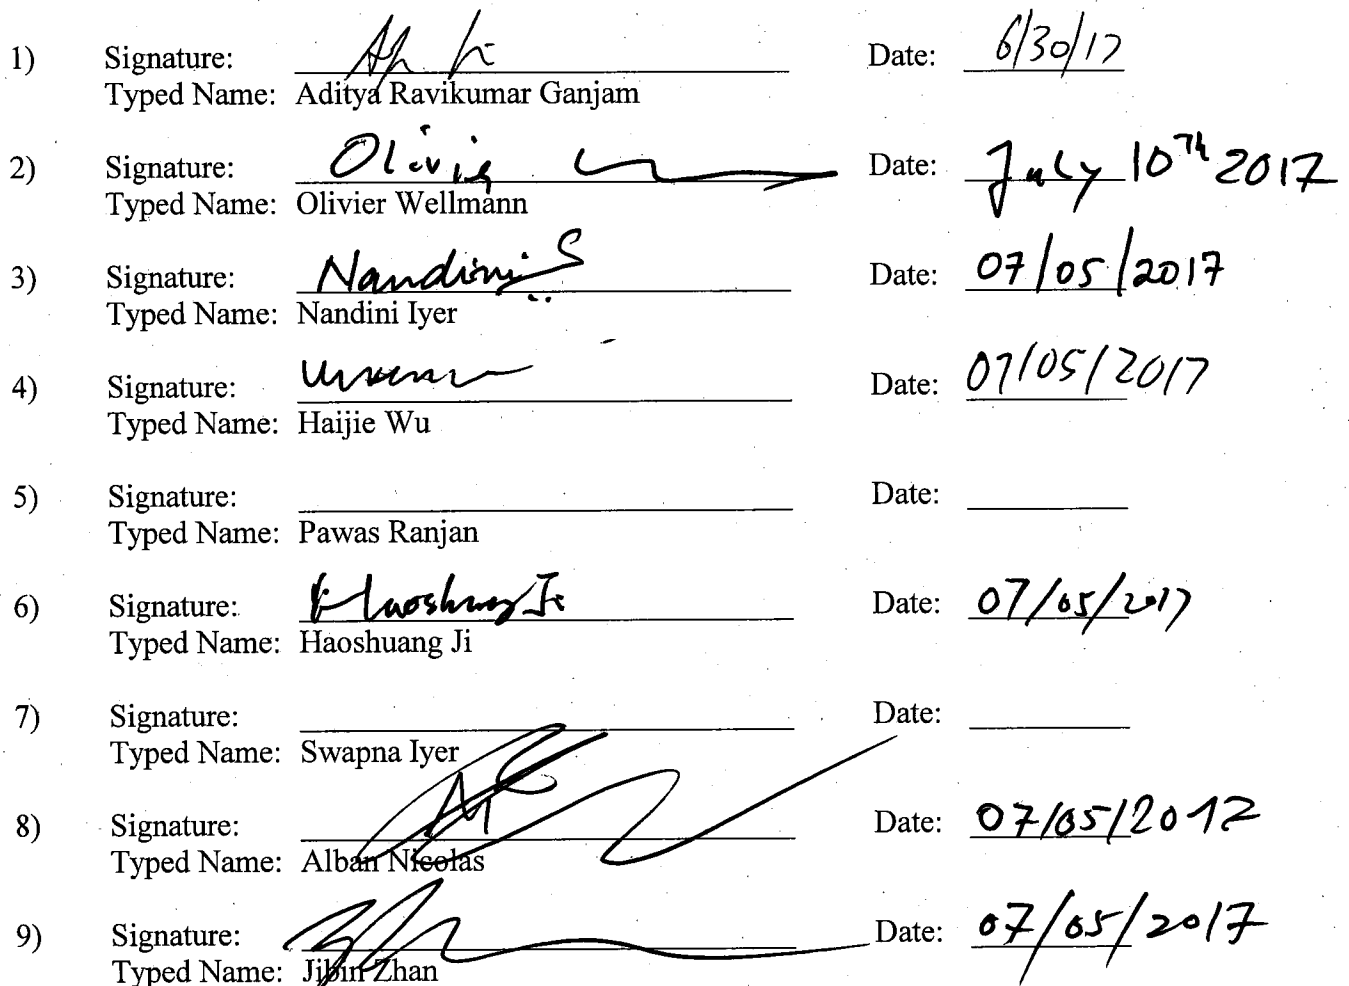 1) Signature: Date: 6/30/17
Typed Name: Aditya Ravikumar Ganjam
2) Signature: Olivier Date: July 10Th 2017
Typed Name: Olivier Wellmann
3) Signature: Nandini S Date: 07/05/2017
Typed Name: Nandini Iyer
4) Signature: Date: 07/05/2017
Typed Name: Haijie Wu
5) Signature: Date:
Typed Name: Pawas Ranjan
6) Signature: Haoshuang Ji Date: 07/05/2017
Typed Name: Haoshuang Ji
7) Signature: Date:
Typed Name: Swapna Iyer
8) Signature: Date: 07/05/2017
Typed Name: Alban Nicolas
9) Signature: Date: 07/05/2017
Typed Name: Jibin Zhan